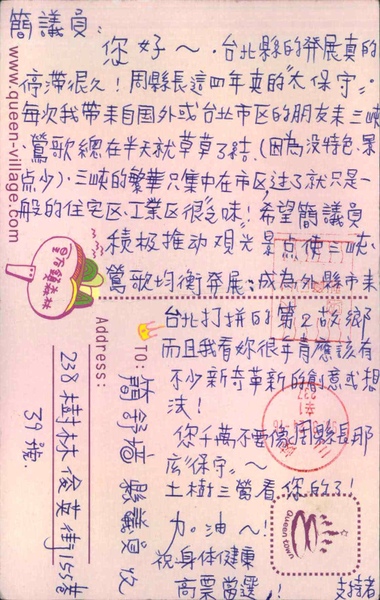 簡議員：
您好～．台北縣的發展真的
停滯很久！周縣長這四年真的"太保守"．
每次我帶來自国外或台北市区的朋友来三峽
．鶯歌總在半天就草草了結．(因為没特色．景
点少)．三峽的繁華只集中在市区，过了就只是一
般的住宅区．工業区很乏味！希望簡議員
積极推动观光景点使三峽．
鶯歌均衡発展；成為外縣市来
台北打拼的第2故鄉
而且我看妳很年青應該有
不少新奇革新的創意或想
法！
您千萬不要像周縣長那
庅"保守"～
土樹三鶯看您的了！
加油～！
祝身体健康
高票當選！
支持者
www.queen-village.com
TO: 簡舒培 縣議員 收
Address:
238 樹林 俊英街155巷
39號．
237
Queen town